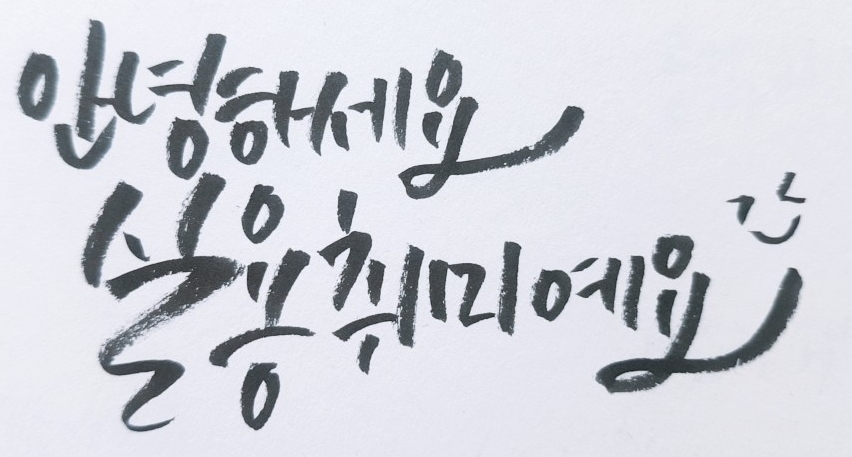 안녕하세요
실용취미예요